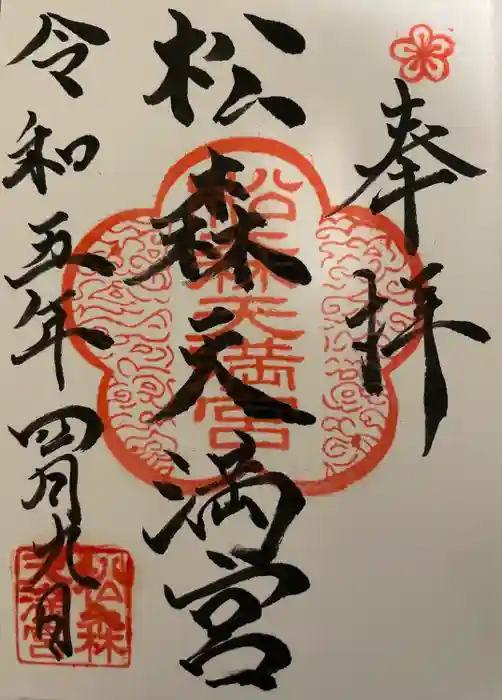 奉拝
松森天満宮
令和五年四月九日
松森天満宮
松森天満宮